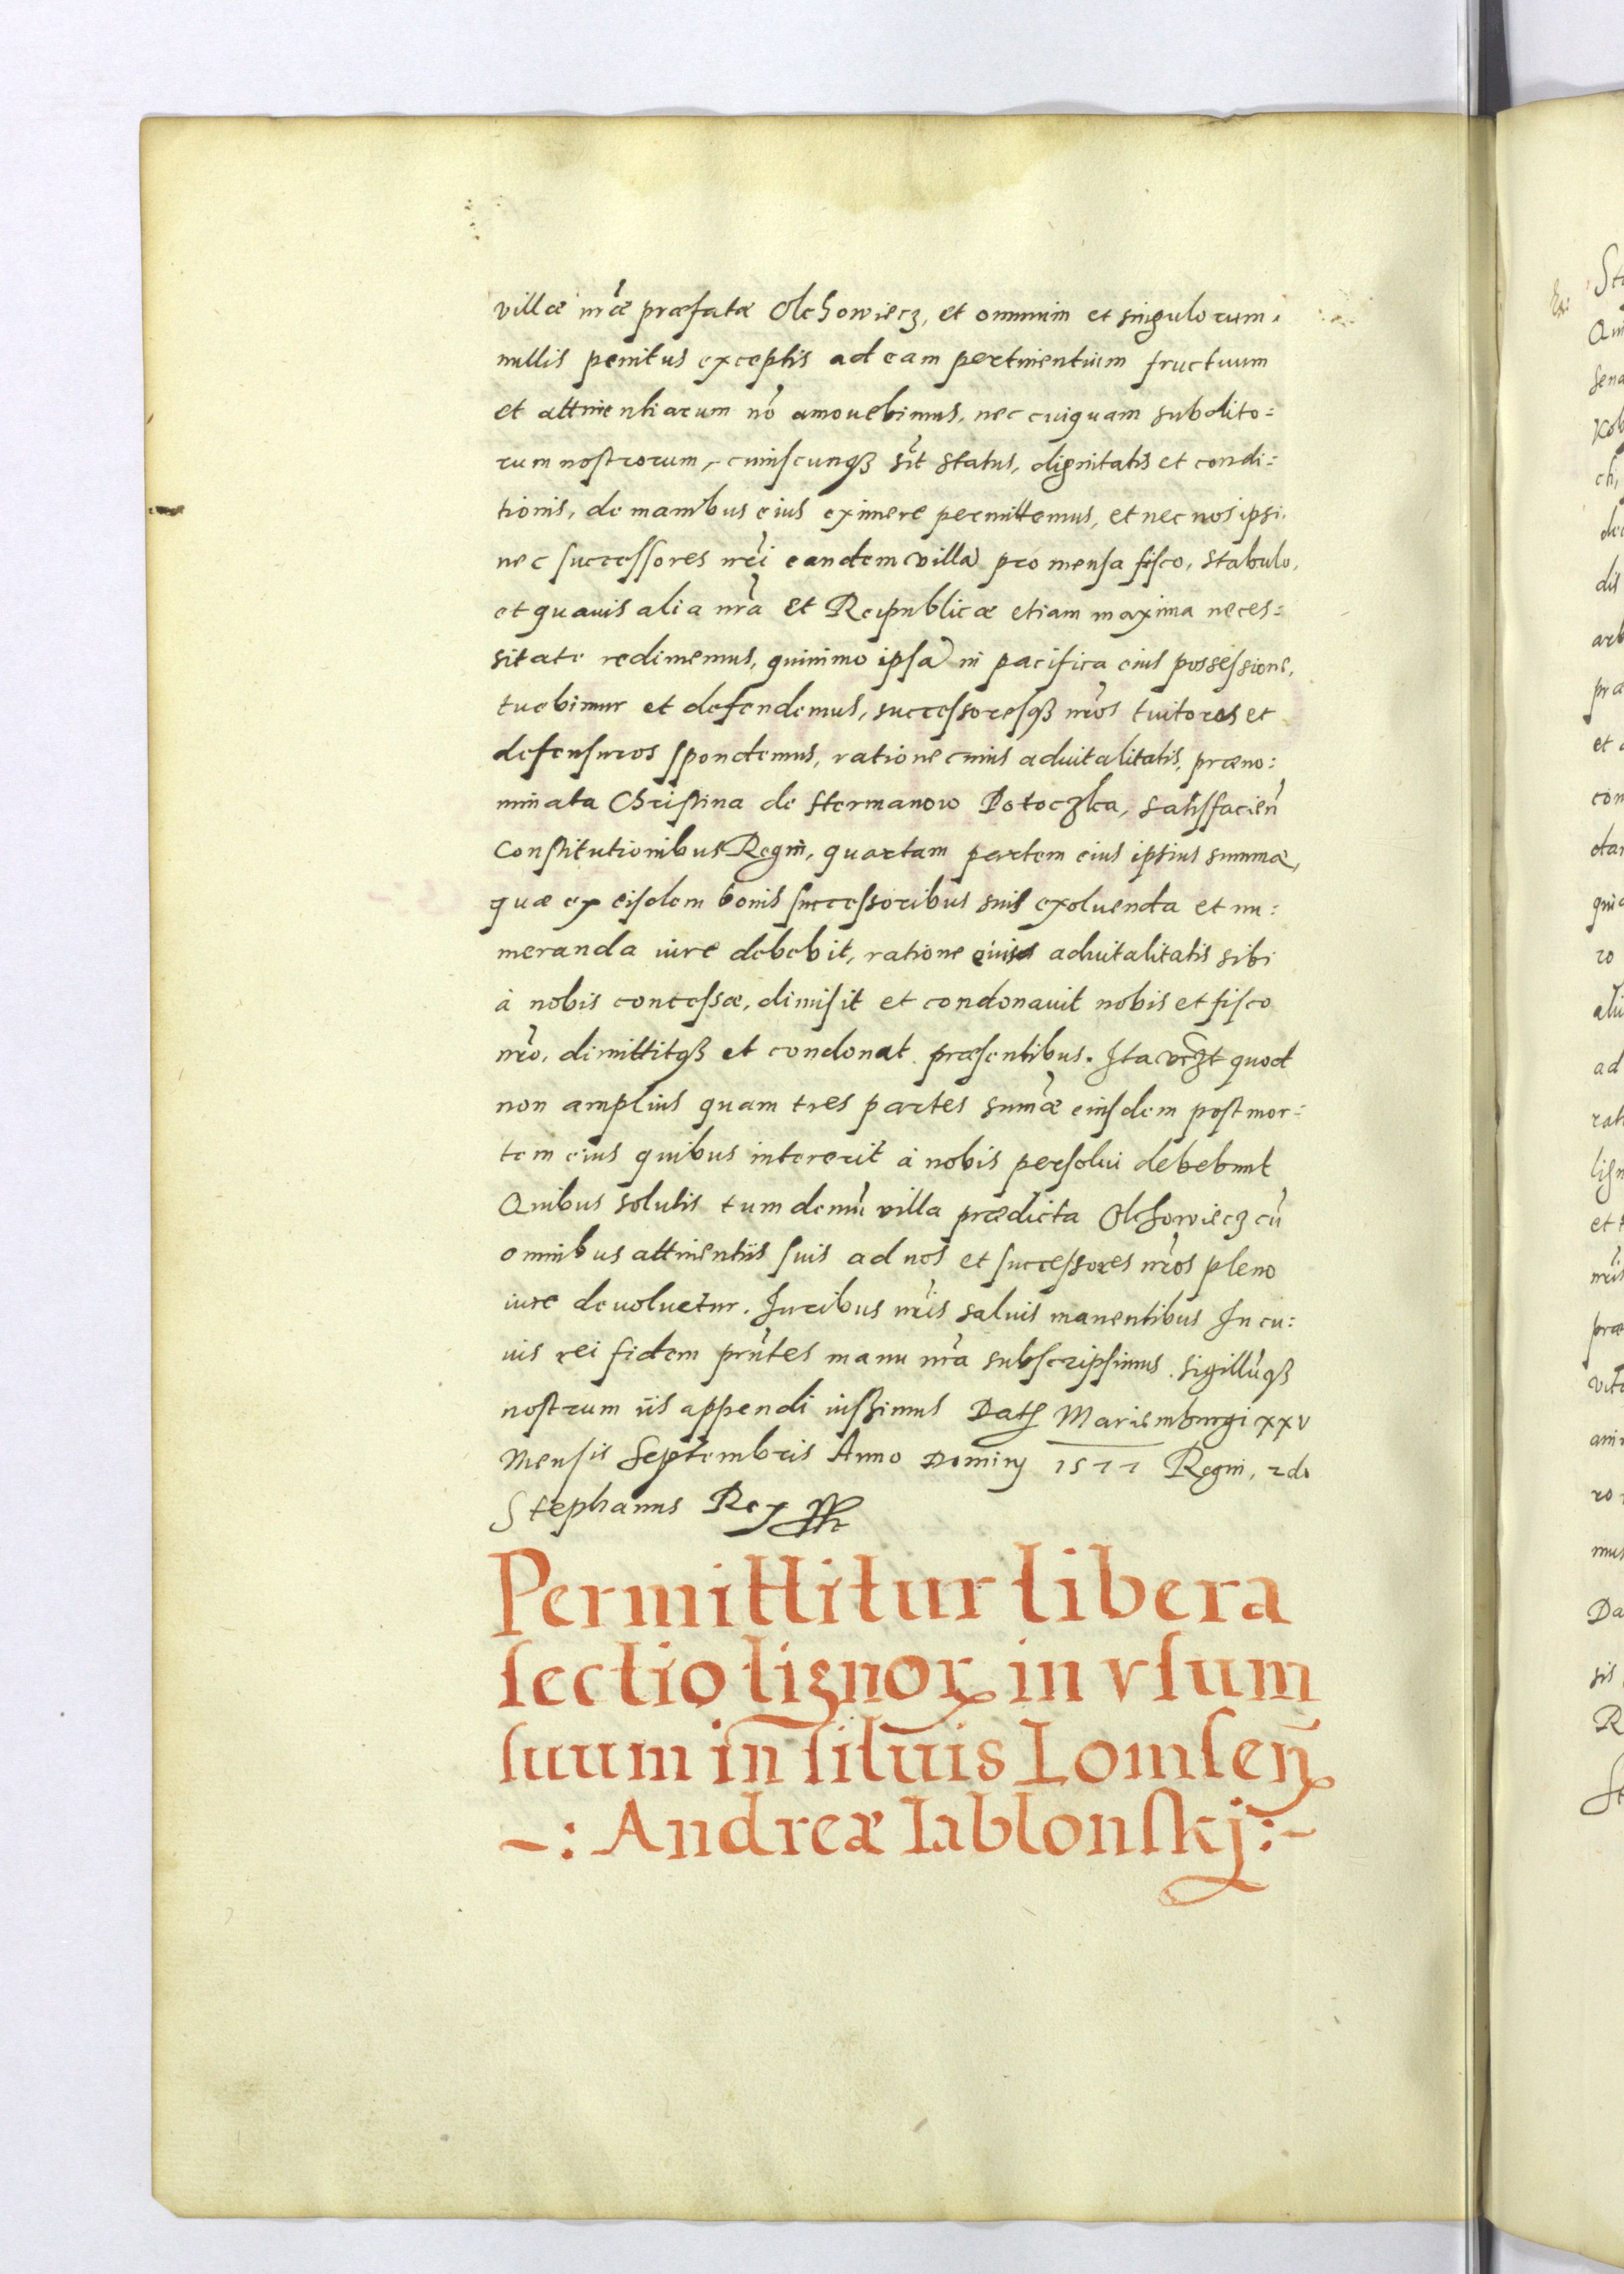 villæ nr̃æ præfatæ Olchowiecz, et omnium et singulorum,
nullis penitus exceptis ad eam pertinentium fructuum
et attinentiarum nõ amouebimus, nec cuiquam subdito=
rum nostrorum, cuiuscunqꝫ sit status, dignitatis et condi=
tionis, de manibus eius eximere permittemus, et nec nos ipsi
nec successores nr̃i eandem villã pro mensa fisco, stabulo,
et quauis alia nr̃a et Reipublicæ etiam maxima neces=
sitate redimemus, quinimo ipsã in pacifica eius possessione,
tuebimur et defendemus, successoresqꝫ nr̃os tuitoros et
defensuros spondemus, ratione cuius aduitalitatis, præno=
minata Christina de Stermanow Potoczka, satisfacieñ
Constitutionibus Regni, quartam partem eius ipsius summæ,
quæ ex eisdem bonis successoribus suis exoluenda et nu=
meranda iure debebit, ratione eius aduitalitatis sibi
à nobis concessæ, dimisit et condonauit nobis et fisco
nr̃o, dimittitqꝫ et condonat præsentibus. Ita vꝫt quod
non amplius quam tres partes sum̃æ eiusdem post mor=
tem eius quibus intererit à nobis persolui debebunt
Quibus solutis tum demũ villa prædicta Olchowiecz cũ
omnibus attinentiis suis ad nos et successores nr̃os pleno
iure deuoluetur. Iuribus nr̃is saluis manentibus In cu=
ius rei fidem pñtes manu nr̃a subscripsimus. sigillũqꝫ
nostrum iis appendi iussimus Datꝭ Mariemburgi xxv
Mensis Septembris Anno Dominj 1577 Regni, 2do
Stephanus Rex
Permittitur libera
sectio lignoꝝ in vsum
suum in siluis Lomseñ
-: Andreæ Iablonskj:-